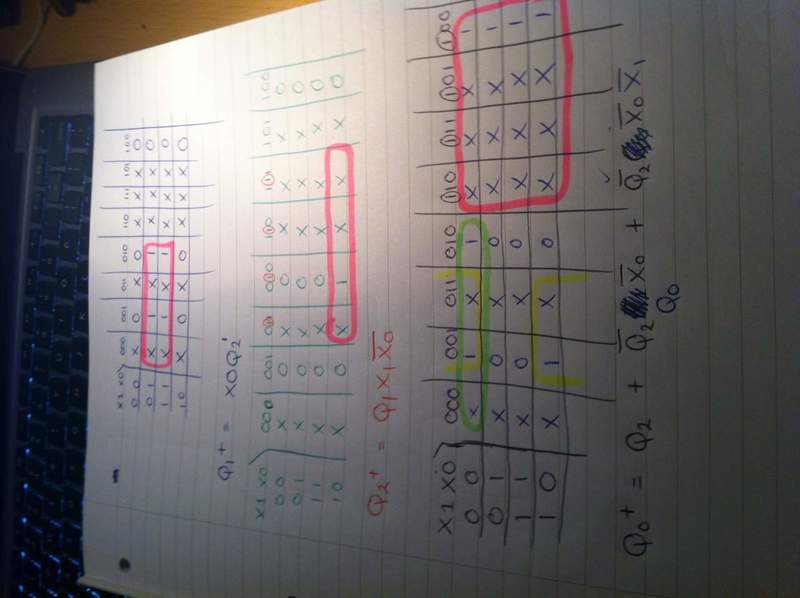 X1 X0 000 001 011 010 110 111 101 100
0 0 X 0 X 0 X X X 0
0 1 X 1 X 1 X X X 0
1 1 X 1 X 1 X X X 0
1 0 X 0 X 0 X X X 0
Q1+ = X0Q2'
X1 X0 000 001 011 010 110 111 101 100
0 0 X 0 X 0 X X X 0
0 1 X 0 X 0 X X X 0
1 1 X 0 X 0 X X X 0
1 0 X 0 X 1 X X X 0
Q2+ = Q1 X1 X̅0
X1 X0 000 001 011 010 110 111 101 100
0 0 X 1 X 1 X X X 1
0 1 X 0 X 0 X X X 1
1 1 X 0 X 0 X X X 1
1 0 X 1 X 0 X X X 1
Q0+ = Q2 + Q̅2 X̅0 + Q̅2 X̅0 X̅1
Q0